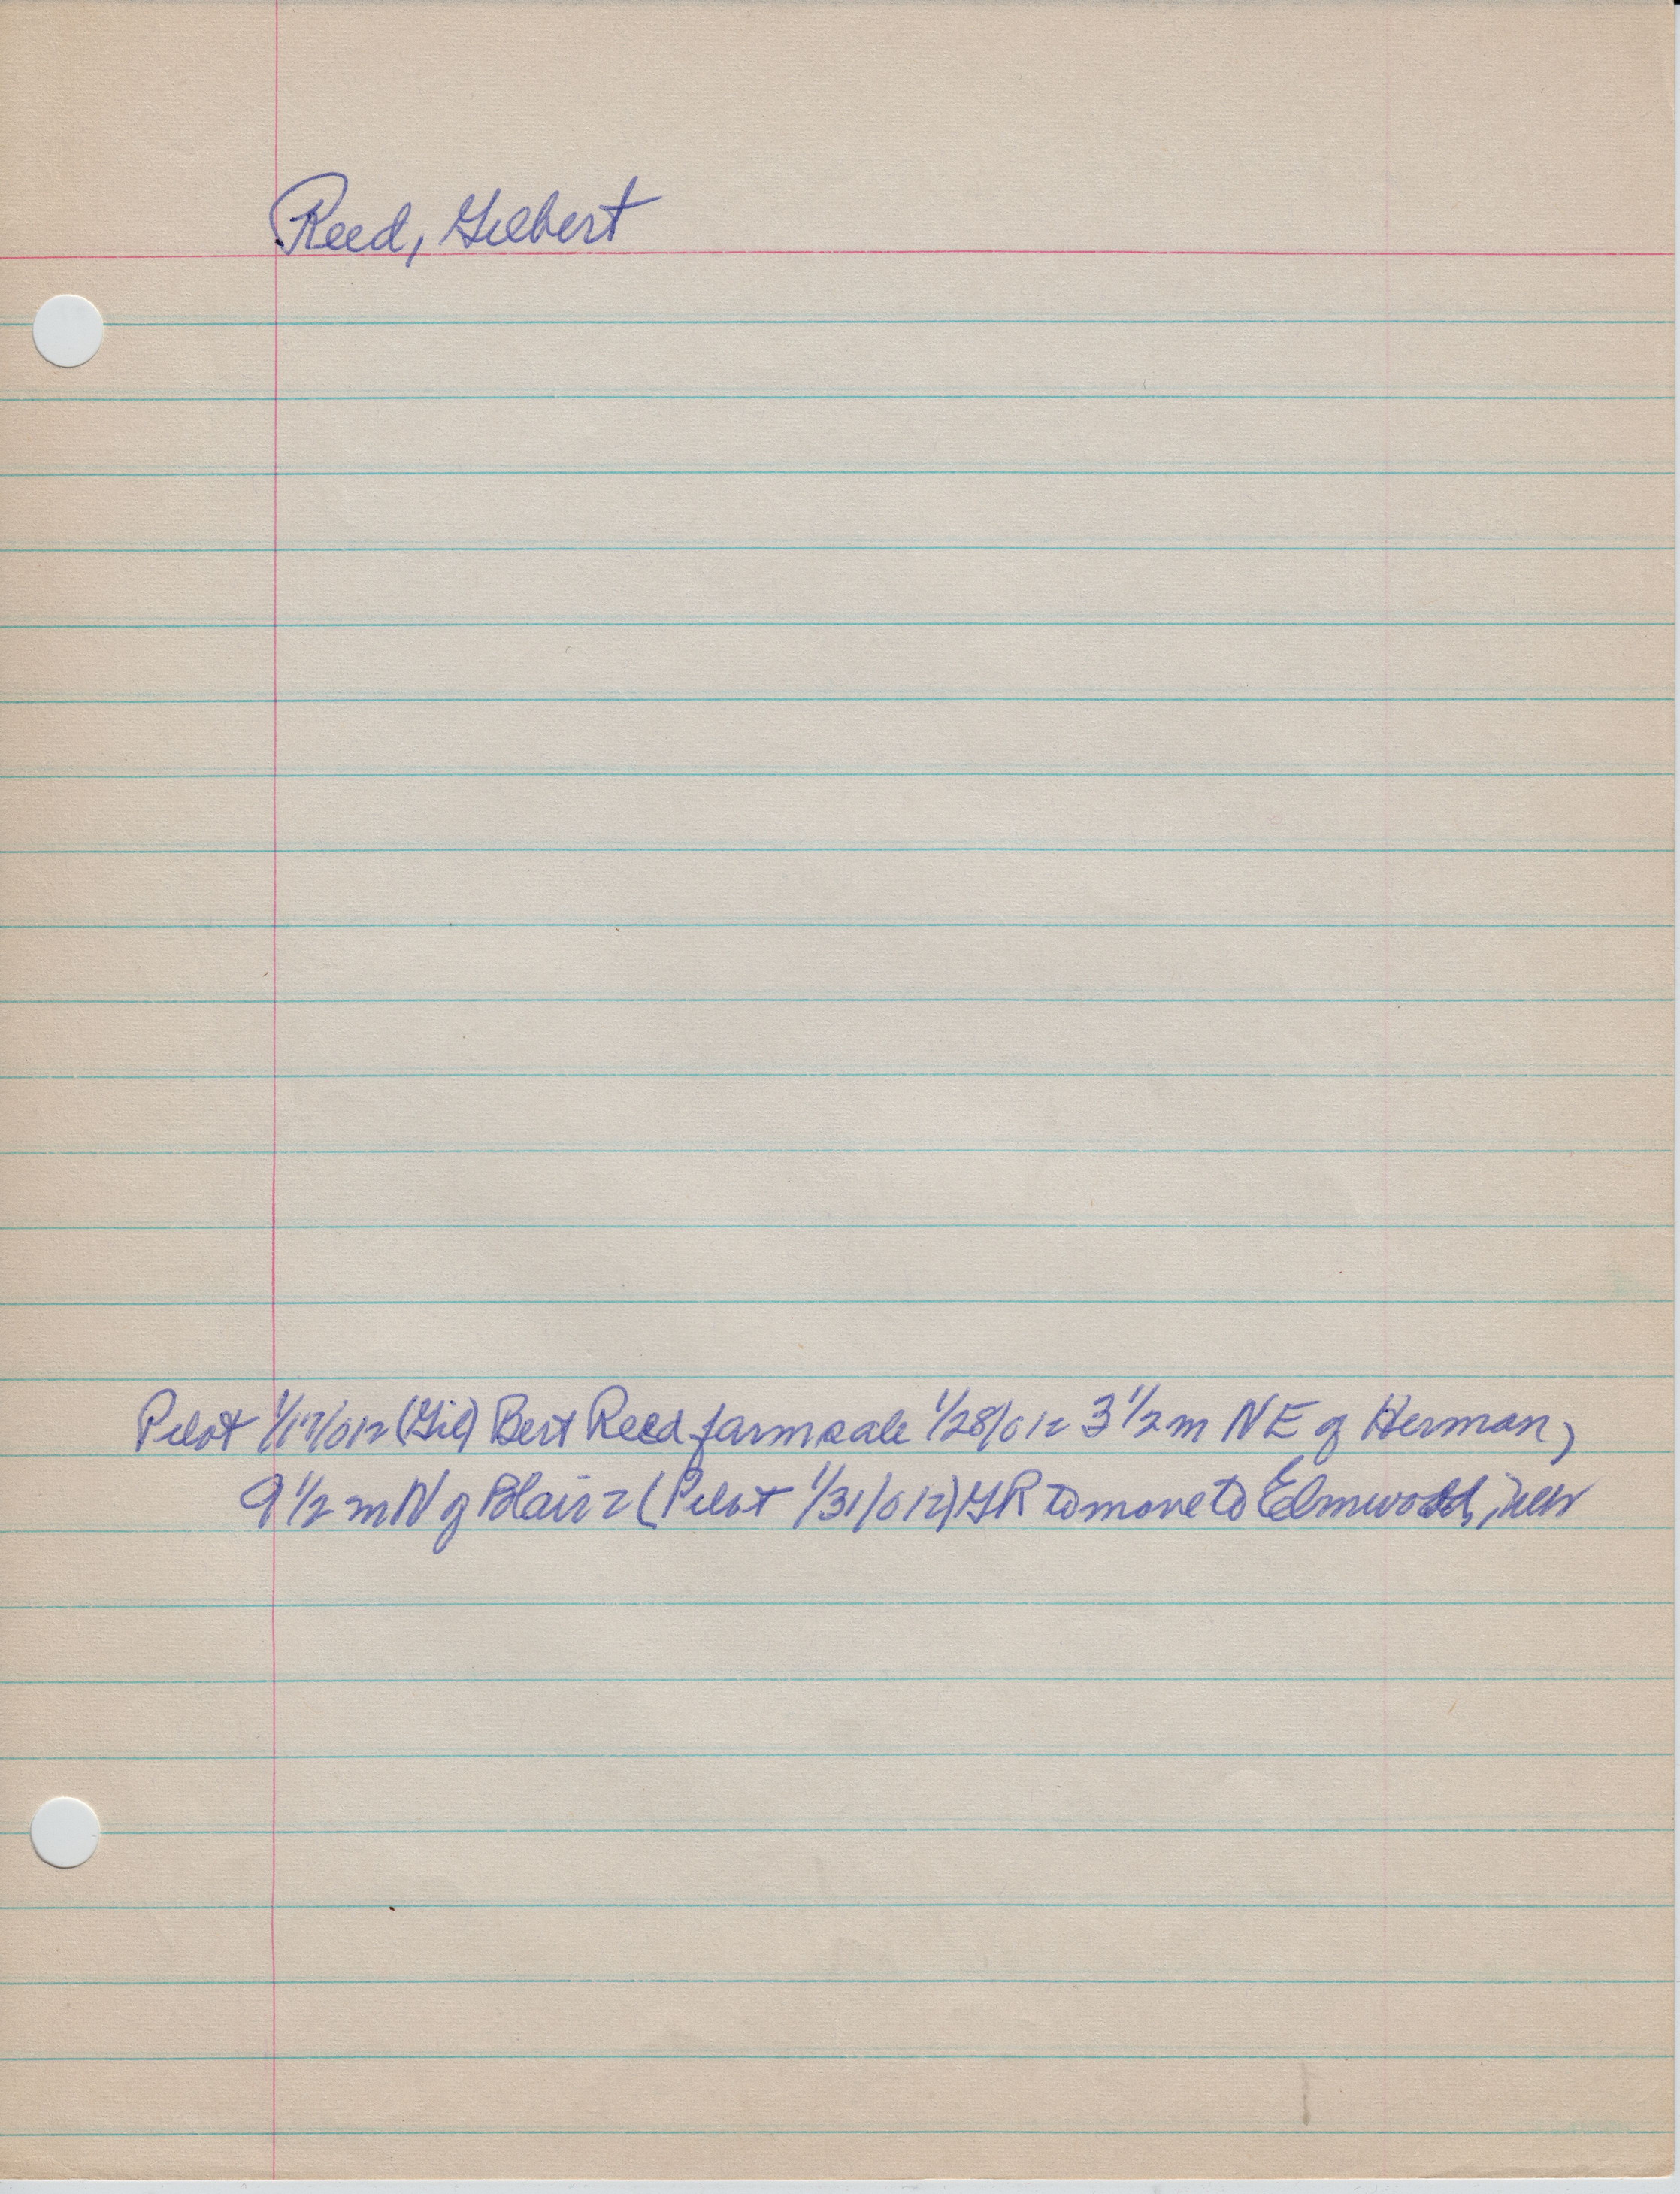 Reed, Gilbert
Pilot 1/17/012 (Gil) Bert Reed farm sale 1/28/012 3 1/2 m NE of Herman,
9 1/2 m N of Blair (Pilot 1/31/012) GR to move to Elmwood,